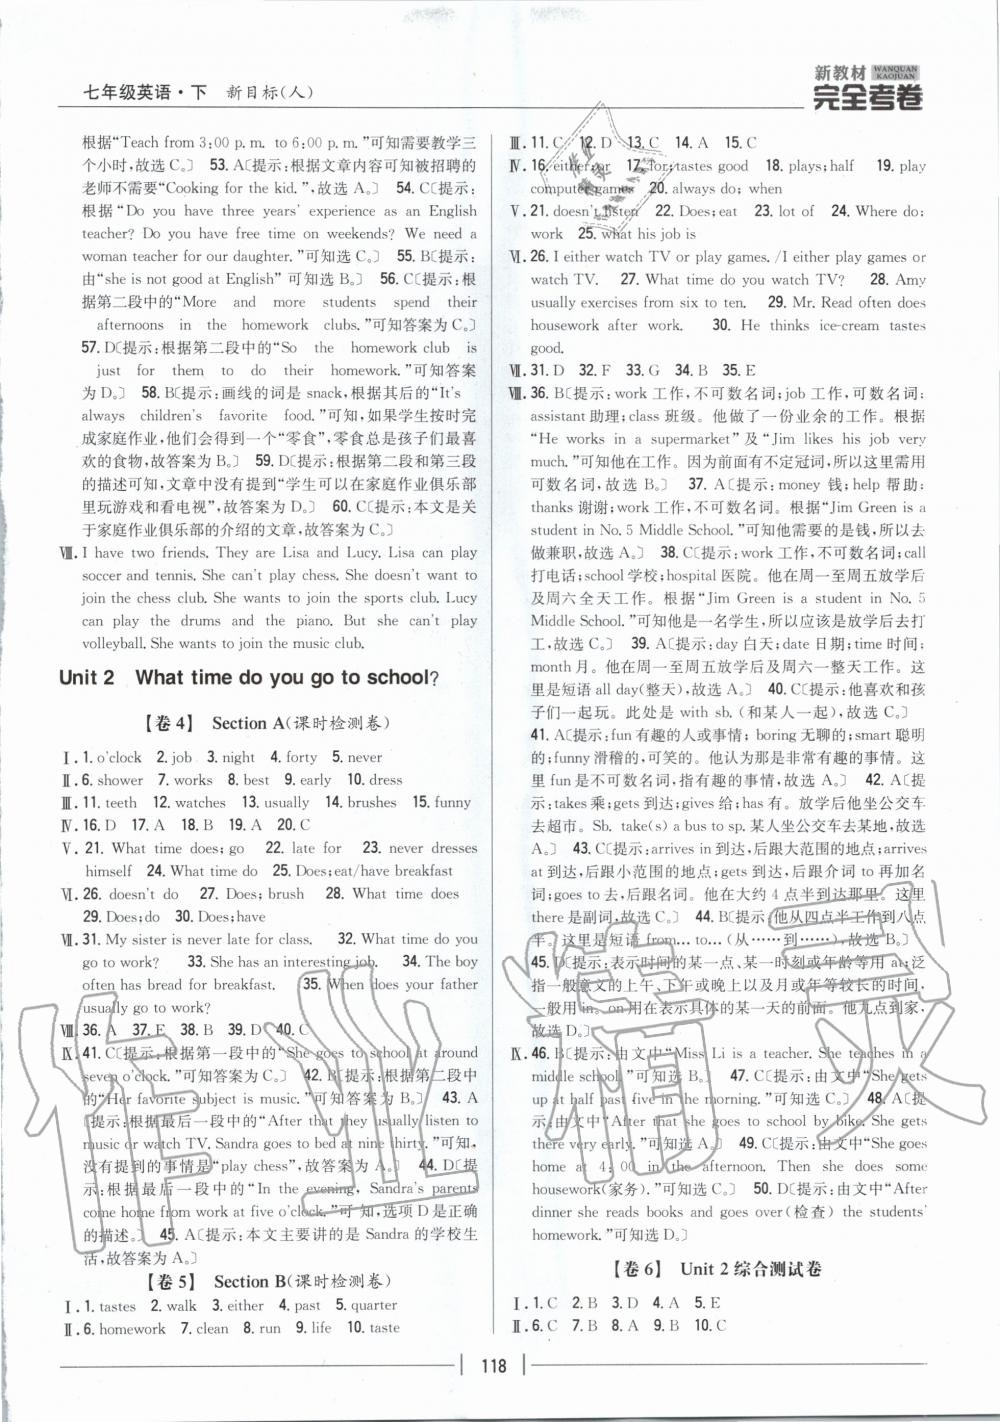 七年级英语·下 新目标(人)
新教材 WANQUAN KAOJUAN
完全考卷
根据“Teach from 3:00 p. m. to 6:00 p. m. ”可知需要教学三
个小时,故选 C。〕 53. A〔提示:根据文章内容可知被招聘的
老师不需要“Cooking for the kid. ”,故选 A。〕 54. C〔提示:
根据“Do you have three years' experience as an English
teacher? Do you have free time on weekends? We need a
woman teacher for our daughter. ”可知选 C。〕 55. B〔提示:
由“she is not good at English”可知选 B。〕 56. C〔提示:根
据第二段中的“More and more students spend their
afternoons in the homework clubs. ”可知答案为 C。〕
57. D〔提示:根据第二段中的“So the homework club is
just for them to do their homework. ”可知答案
为 D。〕 58. B〔提示:画线的词是 snack,根据其后的“It's
always children's favorite food. ”可知,如果学生按时完
成家庭作业,他们会得到一个“零食”,零食总是孩子们最喜
欢的食物,故答案为 B。〕 59. D〔提示:根据第二段和第三段
的描述可知,文章中没有提到“学生可以在家庭作业俱乐部
里玩游戏和看电视”,故答案为 D。〕 60. C〔提示:本文是关
于家庭作业俱乐部的介绍的文章,故答案为 C。〕
Ⅷ. I have two friends. They are Lisa and Lucy. Lisa can play
soccer and tennis. She can't play chess. She doesn't want to
join the chess club. She wants to join the sports club. Lucy
can play the drums and the piano. But she can't play
volleyball. She wants to join the music club.
Unit 2 What time do you go to school?
【卷 4】 Section A(课时检测卷)
Ⅰ. 1. o'clock 2. job 3. night 4. forty 5. never
Ⅱ. 6. shower 7. works 8. best 9. early 10. dress
Ⅲ. 11. teeth 12. watches 13. usually 14. brushes 15. funny
Ⅳ. 16. D 17. A 18. B 19. A 20. C
Ⅴ. 21. What time does; go 22. late for 23. never dresses
himself 24. What time do 25. Does; eat/have breakfast
Ⅵ. 26. doesn't do 27. Does; brush 28. What time does
29. Does; do 30. Does; have
Ⅶ. 31. My sister is never late for class. 32. What time do you
go to work? 33. She has an interesting job. 34. The boy
often has bread for breakfast. 35. When does your father
usually go to work?
Ⅷ. 36. A 37. E 38. B 39. D 40. C
Ⅸ. 41. C〔提示:根据第一段中的“She goes to school at around
seven o'clock. ”可知答案为 C。〕 42. B〔提示:根据第二段中
的“Her favorite subject is music. ”可知答案为 B。〕 43. A
〔提示:根据最后一段中的“After that they usually listen to
music or watch TV. Sandra goes to bed at nine thirty. ”可知,
没有提到的事情是“play chess”,故答案为 A。〕 44. D〔提
示:根据最后一段中的“In the evening, Sandra's parents
come home from work at five o'clock. ”可知,选项 D 是正确
的。〕 45. A〔提示:本文主要讲的是 Sandra 的学校生
活,故答案为 A。〕
【卷 5】 Section B(课时检测卷)
Ⅰ. 1. tastes 2. walk 3. either 4. past 5. quarter
Ⅱ. 6. homework 7. clean 8. run 9. life 10. taste
Ⅲ. 11. C 12. D 13. C 14. A 15. C
Ⅳ. 16. either; or 17. for; tastes good 18. plays; half 19. play
computer games 20. always do; when
Ⅴ. 21. doesn't listen 22. Does; eat 23. lot of 24. Where do;
work 25. what his job is
Ⅵ. 26. I either watch TV or play games. /I either play games or
watch TV. 27. What time do you watch TV? 28. Amy
usually exercises from six to ten. 29. Mr. Read often does
housework after work. 30. He thinks ice-cream tastes
good.
Ⅶ. 31. D 32. F 33. G 34. B 35. E
Ⅷ. 36. B〔提示:work 工作,不可数名词;job 工作,可数名词;
assistant 助理;class 班级。他做了一份业余的工作。根据
“He works in a supermarket”及“Jim likes his job very
much. ”可知他在工作。因为前面有不定冠词,所以这里需用
可数名词,故选 B。〕 37. A〔提示:money 钱;help 帮助;
thanks 谢谢;work 工作,不可数名词。根据“Jim Green is a
student in No. 5 Middle School. ”可知他需要的是钱,所以去
做兼职,故选 A。〕 38. C〔提示:work 工作,不可数名词;call
打电话;school 学校;hospital 医院。他在周一至周五放学后
及周六全天工作。根据“Jim Green is a student in No. 5
Middle School. ”可知他是一名学生,所以应该是放学后去打
工,故选 C。〕 39. A〔提示:day 白天;date 日期;time 时间;
month 月。他在周一至周五放学后及周六一整天工作。这
里是短语 all day(整天),故选 A。〕 40. C〔提示:他喜欢和孩
子们一起玩。此处是 with sb. (和某人一起),故选 C。〕
41. A〔提示:fun 有趣的人或事情; boring 无聊的;smart 聪明
的;funny 滑稽的,可笑的。他认为那是非常有趣的事情。这
里 fun 是不可数名词,指有趣的事情,故选 A。〕 42. A〔提
示:takes 乘;gets 到达;gives 给;has 有。放学后他坐公交车
去超市。Sb. take(s) a bus to sp. 某人坐公交车去某地,故选
A。〕 43. C〔提示:arrives in 到达,后跟大范围的地点;arrives
at 到达,后跟小范围的地点;gets 到达,后跟介词 to 再加名
词;goes to 去,后跟名词。他在大约 4 点半到达那里。这里
there 是副词,故选 C。〕 44. B〔提示:他从四点半工作到八点
半。这里是短语 from... to...(从……到……),故选 B。〕
45. D〔提示:表示时间的某一点、某一时刻或年龄等用 at;泛
指一般意义的上午、下午或晚上以及月或年等较长的时间,
一般用 in。on 用在表示具体的某一天的前面。他九点到家,
故选 D。〕
Ⅸ. 46. B〔提示:由文中“Miss Li is a teacher. She teaches in a
middle school. ”可知选 B。〕 47. C〔提示:由文中“She gets
up at half past five in the morning. ”可知选 C。〕 48. A〔提
示:由文中“After that she goes to school by bike. She gets
there very early. ”可知选 A。〕 49. C〔提示:由文中“She goes
home at 4:00 in the afternoon. Then she does some
housework(家务). ”可知选 C。〕 50. D〔提示:由文中“After
dinner she reads books and goes over(检查) the students'
homework. ”可知选 D。〕
【卷 6】 Unit 2 综合测试卷
Ⅰ. 1. C 2. B 3. D 4. A 5. E
Ⅱ. 6. C 7. B 8. A 9. B 10. C
118
作业精灵